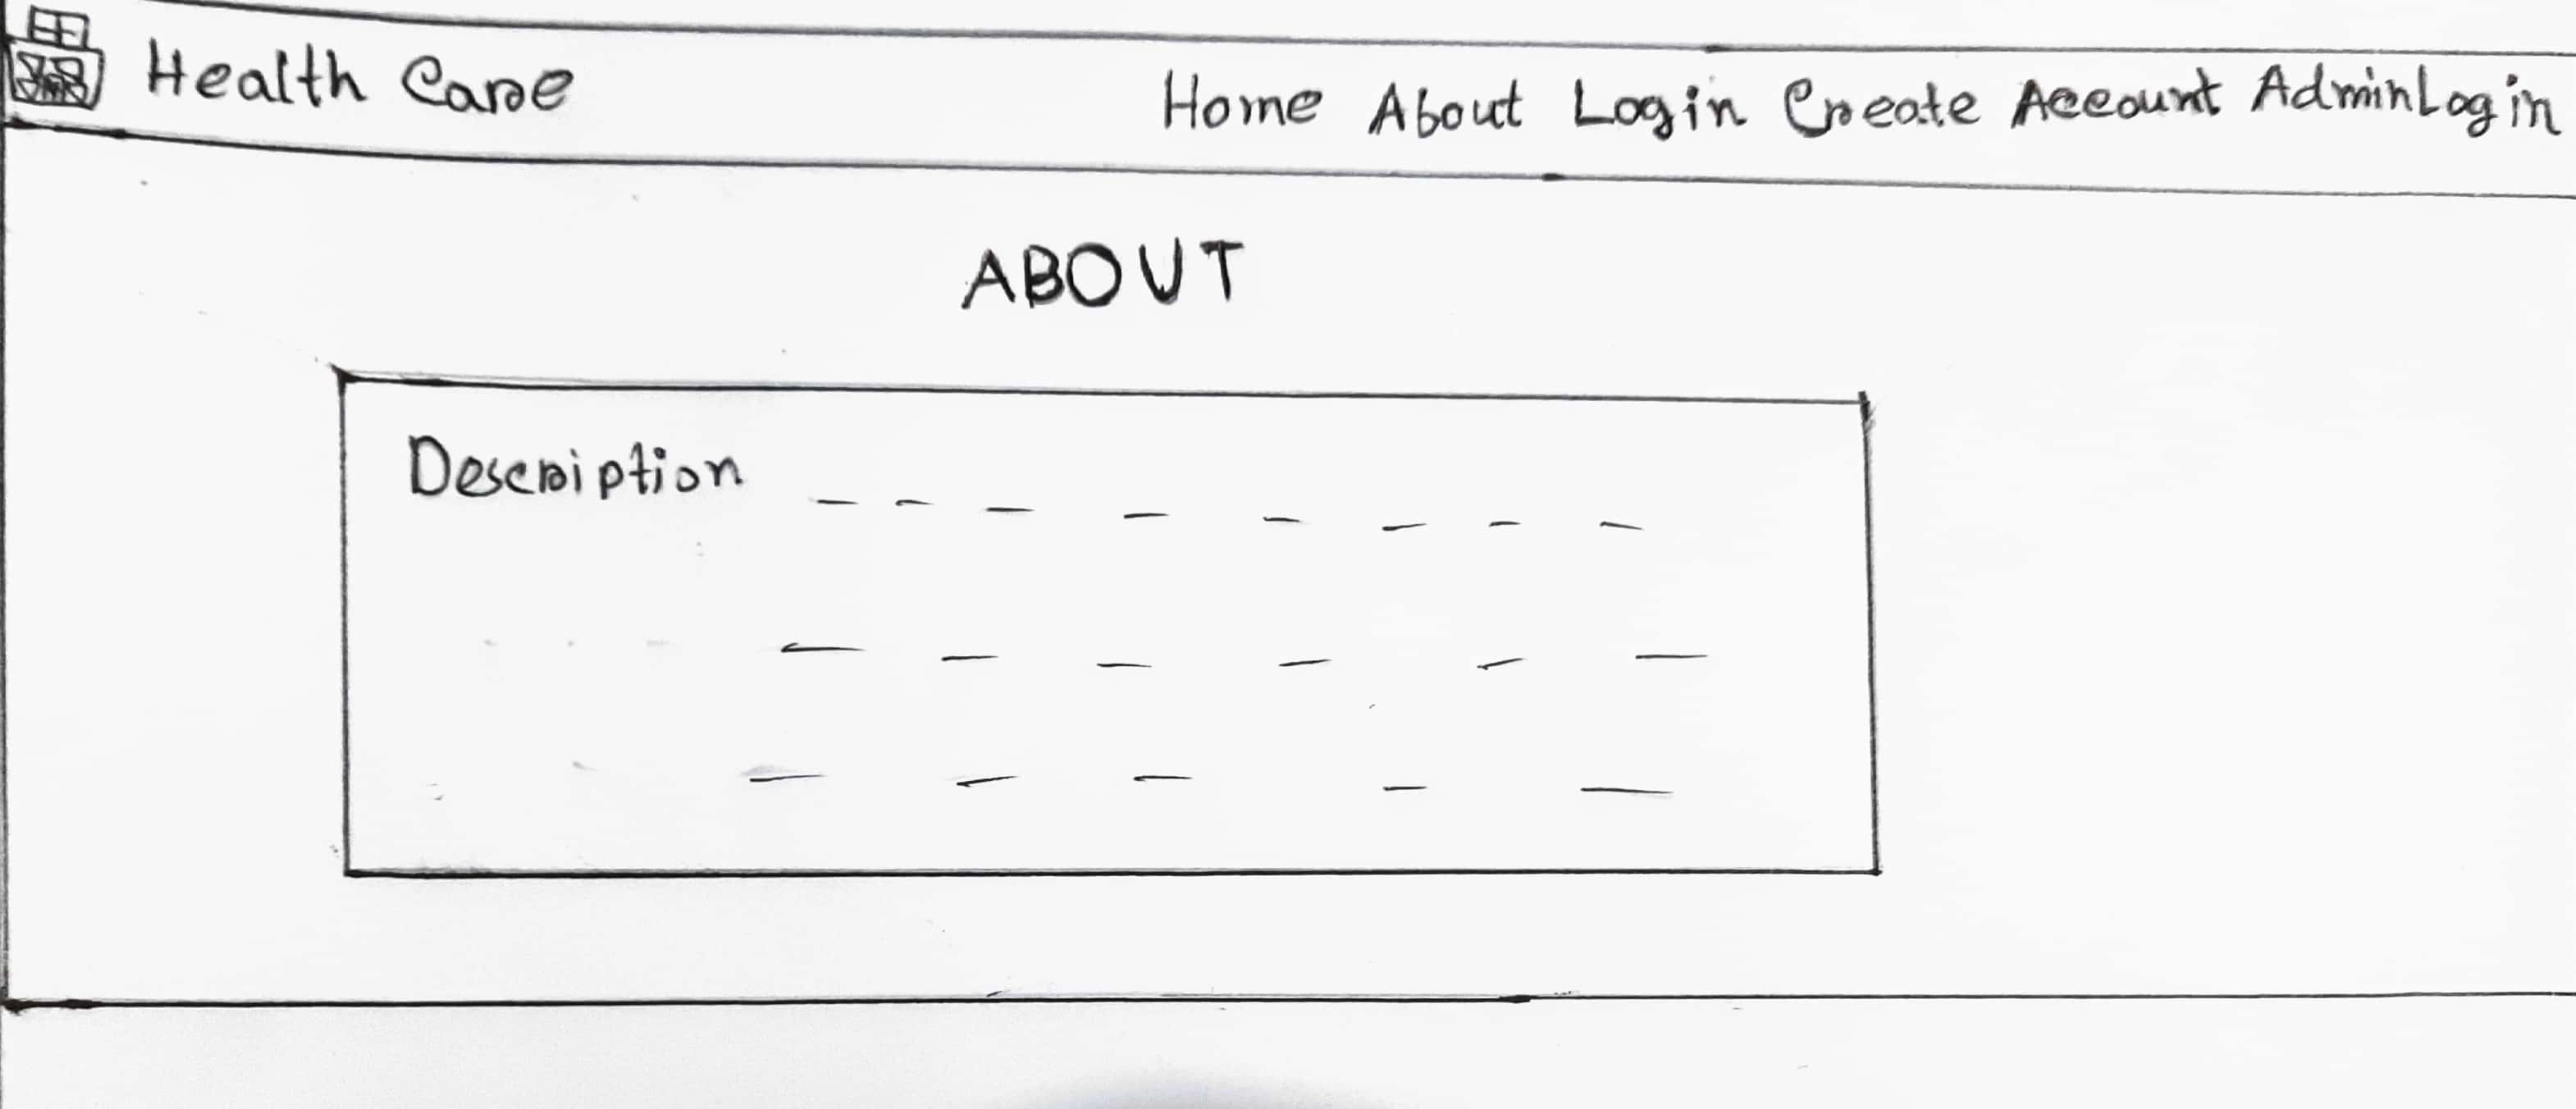 Health Care
Home About Login Create Account AdminLogin
ABOUT
Description